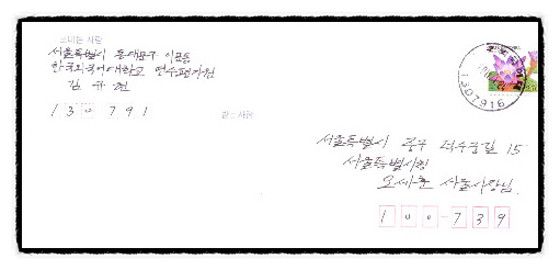 보내는 사람
서울특별시 동대문구 이문동
한국외국어대학교 연수평가원
김규현
130791
받는사람
서울특별시 중구 덕수궁길 15
서울특별시청
오세훈 서울시장님.
100-739
1307916